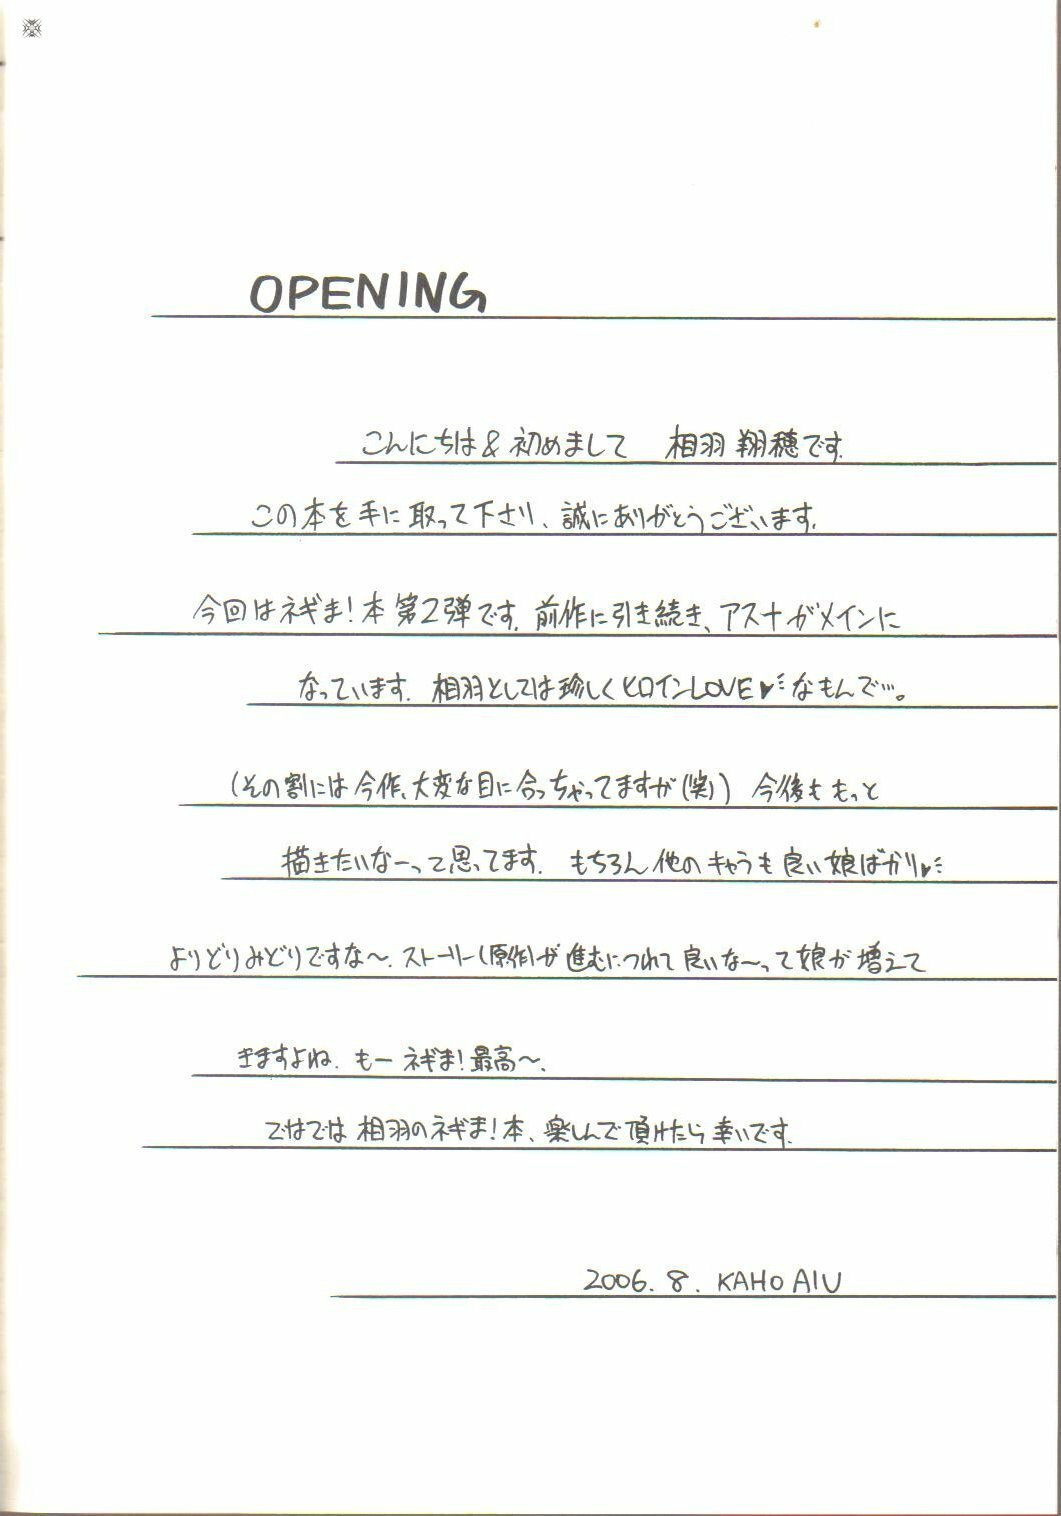 OPENING
こんにちは&初めまして 相羽 翔穂です.
この本を手に取って下さり、誠にありがとうございます.
今回はネギま!本第2弾です. 前作に引き続き、アスナがメインに
なっています. 相羽としては珍しくヒロインLOVE♥なもんで…。
(その割には今作、大変な目に合っちゃってますが(笑)) 今後ももっと
描きたいなーって思ってます. もちろん他のキャラも良い娘ばかり♥
よりどりみどりですな〜. ストーリー(原作)が進むにつれて良いな〜って娘が増えて
きますよね. もーネギま!最高〜.
ではでは相羽のネギま!本、楽しんで頂けたら幸いです.
2006.8. KAHO AIU